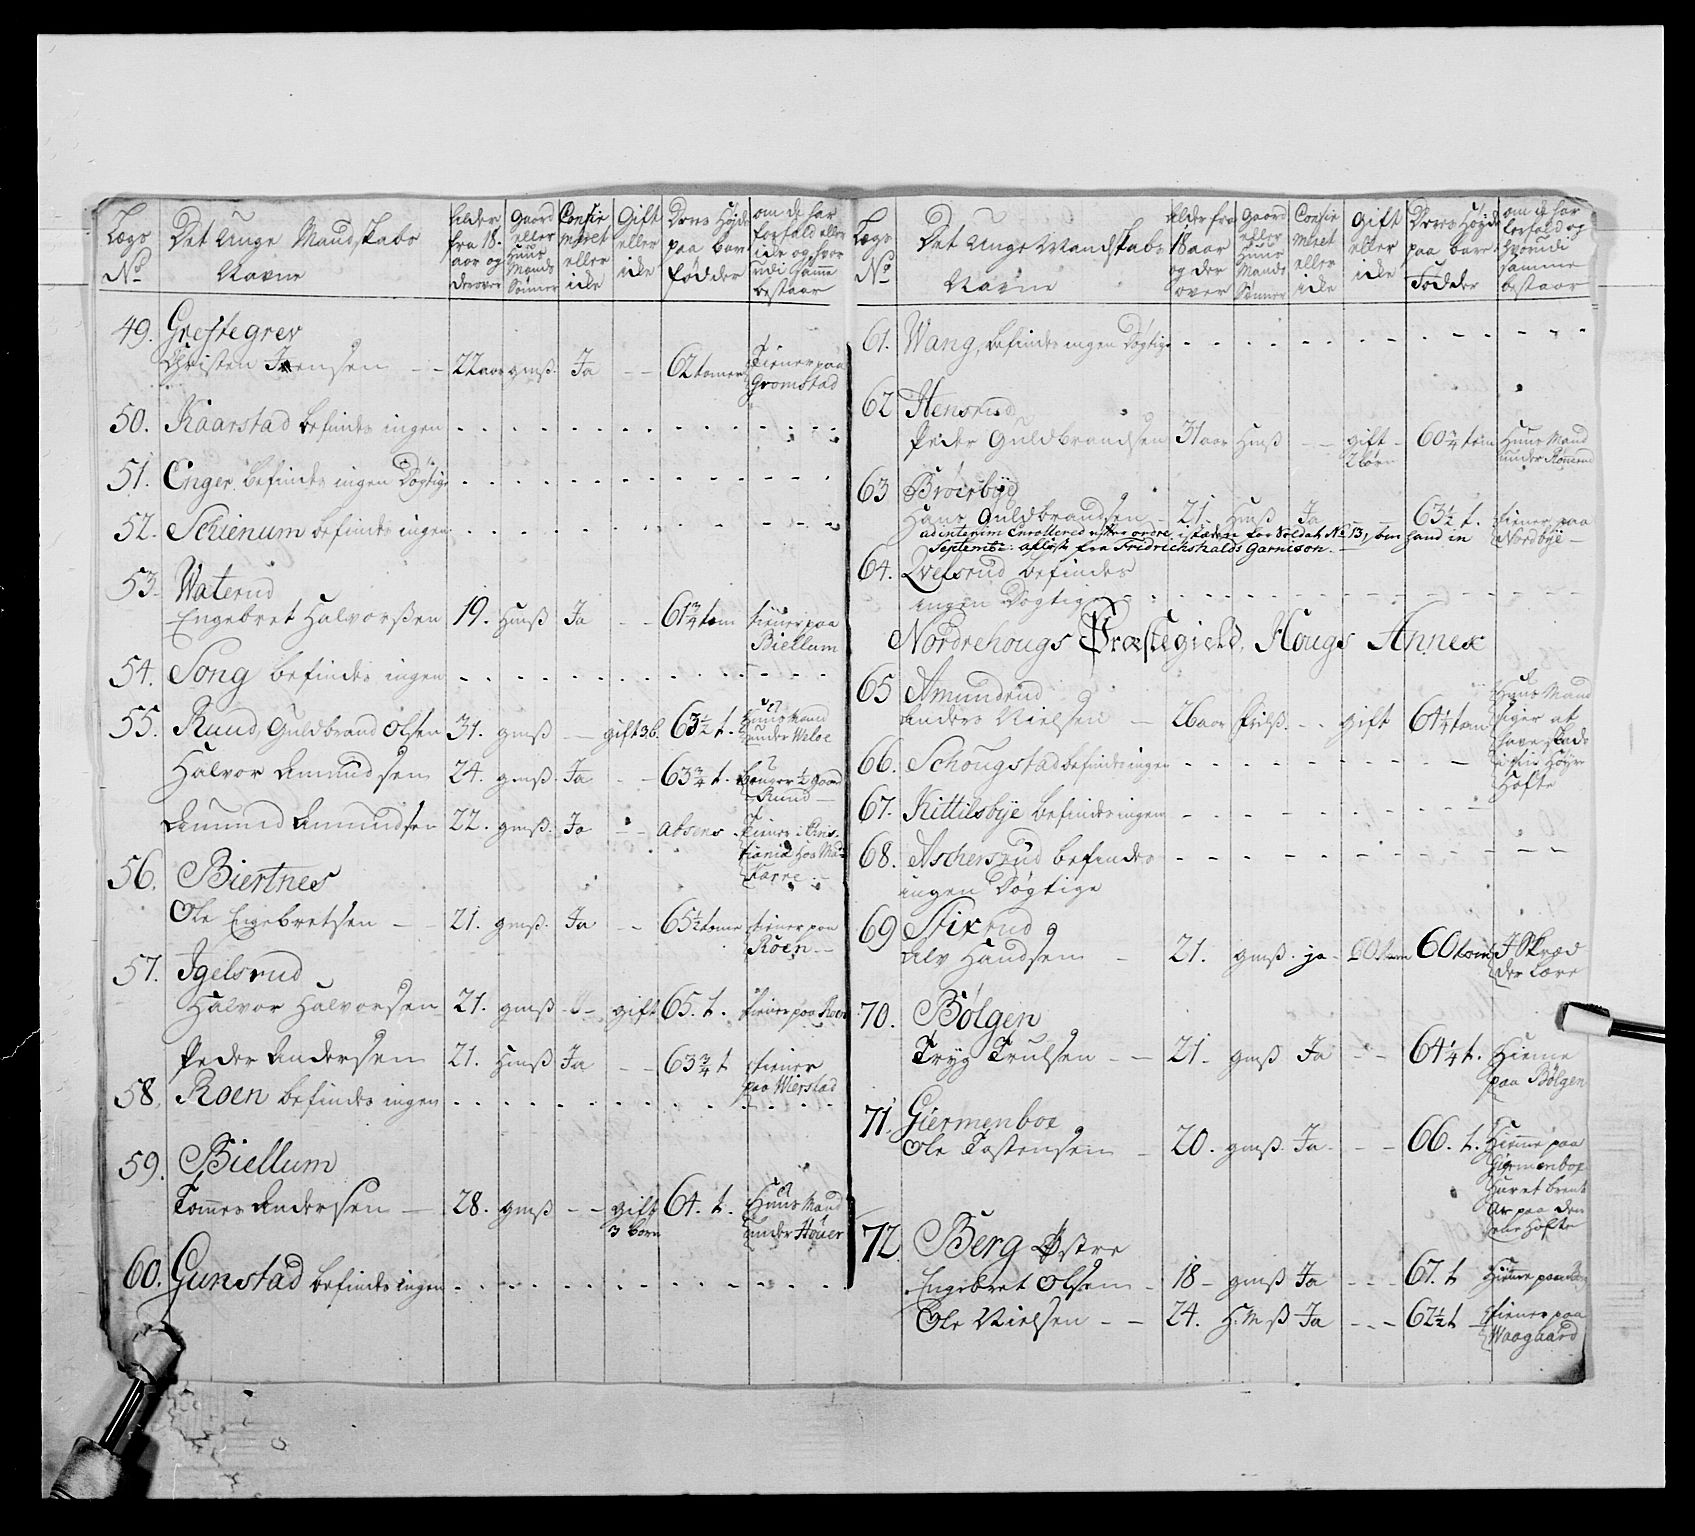 Lægs Det Unge Mandskabs Alder fra 18. aar og derover Gaard eller Huus Mands Sønner Consirmeret eller icke Gift eller icke Deres Højde paa bar fødder om de har forfald eller icke og hvor udi samme bestaar
No Navne
49. Grestegrev
Christen Jensen — 22 aar gmß. Ja — 62 tomer Tiener paa Gromstad
50. Kaarstad befindes ingen
51. Enger. befindes ingen Døgtige
52. Schienum befindes ingen
53. Waterud
Engebret Halvorßen 19. Hmß Ja — 61¾ tom tiener paa Biellum
54. Song befindes ingen
55. Ruud, Guldbrand Olsen 31. gmß — gift 3 b. 63½ t. Huus Mand under Weloe
Halvor Amundsen 24. gmß. Ja — 63¾ t. bruger ½ gaard Ruud —
Amund Amundsen 22. gmß. Ja — absens. Tiener i Christiania hos
56. Biertnes
Ole Engebretsen — 21. gmß. Ja — 65½ tome tiener paa Roen —
57. Igelsrud
Halvor Halvorsen 21. gmß — gift 65. t. tiener paa Roen
Peder Andersen 21. Hmß Ja — 63¾ t tiener paa Wierstad
58. Roen befindes ingen
59. Biellum
Tommes Andersen — 28. gmß — gift 3 born 64. t. Huus Mand under Høuer
60. Gunstad befindes ingen
Lægs Det Unge Mandskabs Alder fra 18 aar og der over Gaard eller Huus Mands Sønner Consirmeret eller icke Gift eller icke Deres Højde paa bare Fødder om de har forfald og hvorudi samme bestaar
No Navne
61. Wang, befindes ingen Døgtige
62 Hensrud
Peder Guldbrandsen 31 aar Hmß — gift 2 børn 60¾ tom Huus Mand under
63 Broerbye
Hans Guldbrandsen — 21. Hmß Ja — 63½ t. tiener paa Nordbye —
ad interim Enrollered efter ordre i stæden for Soldat No 13, som hand in
Septembr: afløste fra Fridrichshalds Garnison. —
64. Qvelsrud befindes
ingen Døgtige
Nordrehougs Præstegield, Hougs Annex
65 Amundrud
Anders Nielsen — 26 aar — gift 61¼ tom Huus Mand siger at have skade i sin Høyre Hofte
66. Schougstad befindes ingen
67. Kittilsbye befindes ingen
68. Aschersrud befindes
ingen Døgtige
69 Stixrud
Alv Hansen — 21. gmß. ja — 60 tom 60 tom I Skræd der lære
70. Bølgen
Tryg Trulsen — 21. gmß Ja — 64¼ t. Hieme paa Bølgen
71. Giermenboe
Ole Tostensen — 20. gmß. Ja — 66. t. Hieme paa Giermenboe Haver brent Ar paa den ene Hofte
72. Berg Østre
Engebret Olsen — 18 — gmß Ja — 67. t Hieme paa Berg
Ole Nielsen — 24. H:mß Ja — 62½ t tiener paa Waagaard